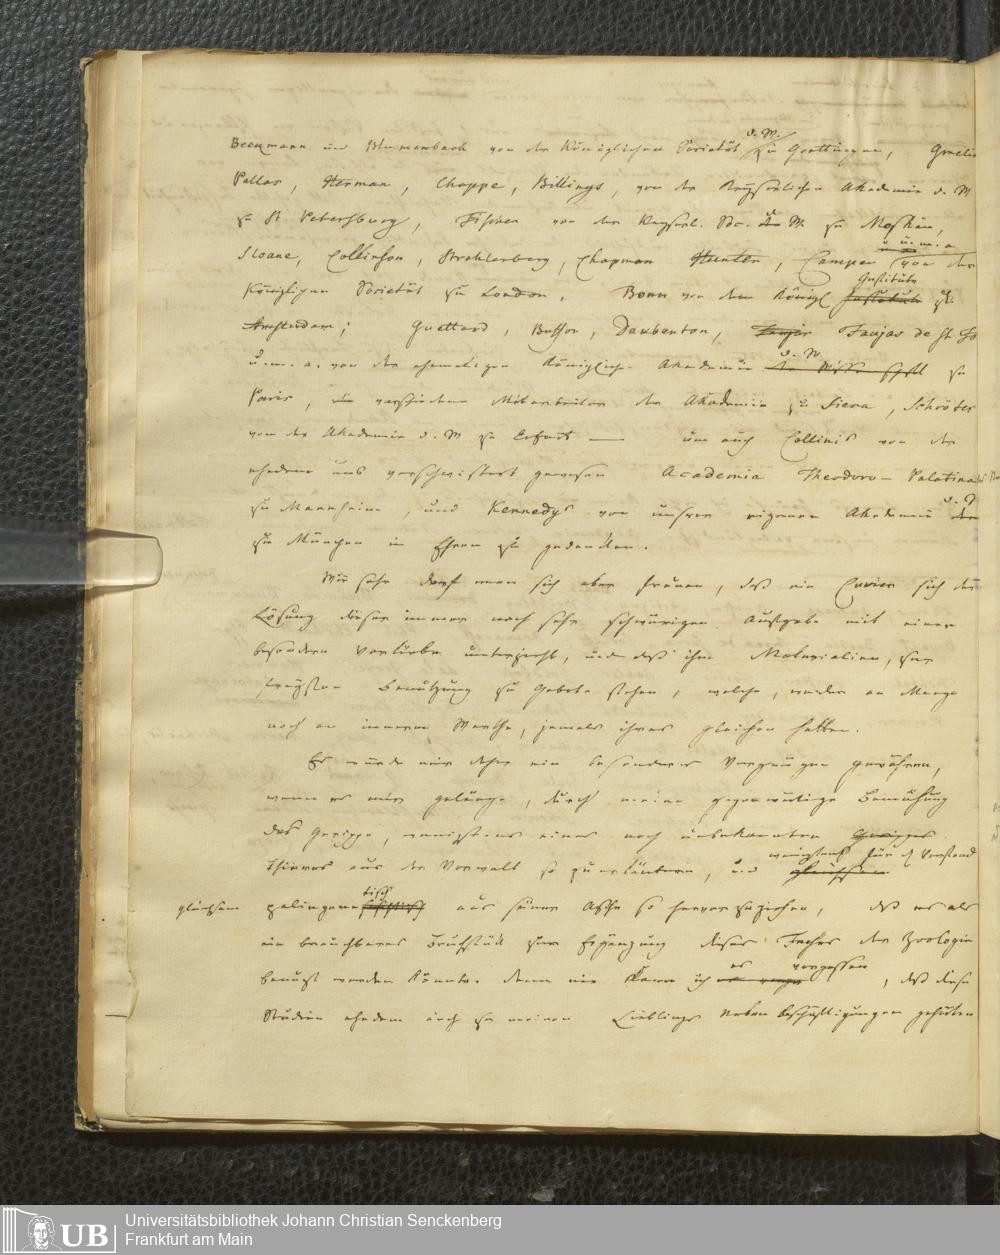 Beckmann und Blumenbach von der Königlichen Societät d. W. zu Goettingen, Gmelin
Pallas, Herman, Chappe, Billings, von der Kayserlichen Akademie d. W
zu St Petersburg, Fischer von der Kayserl. Soc. d W. zu Moskau,
Sloane, Collinson, Strahlenberg, Chapman Hunter, Camper u. u. m. a von der
Königlichen Societät zu London, Bonn von dem Königl Institute zu
Amsterdam; Guettard, Buffon, Daubenton, Faujas de St Fo
u. m. a. von der ehemaligen Königlichen Akademie d. W. zu
Paris, verschiedene Mitarbeiter der Akademie zu Siena, Schröter
von der Akademie d. W zu Erfurt — um auch Collinis von der
ehedem uns verschwistert gewesen Academia Theodoro-Palatina
zu Mannheim, und Kennedys von unserer eigenen Akademie d. W
zu München in Ehren zu gedenken.
Wie sehr darf man sich aber freuen, daß ein Cuvier sich der
Lösung dieser immer noch sehr schwürigen Aufgabe mit einer
besondern Vorliebe unterzieht, und daß ihm Materialien, zur
freysten Benützung zu Gebote stehen, welche, weder an Menge
noch an innerem Werthe, jemals ihres gleichen hatten.
Es würde mir daher ein besonderes Vergnügen gewähren,
wenn es mir gelänge, durch meine gegenwärtige Bemühung
das Gerippe, wenigstens eines noch unbekannten Gerippes
Thieres aus der Vorwelt so zu erläutern, und wenigstens für d Verstand
gleichsam palingenetisch aus seiner Asche so hervorzuziehen, daß es als
ein brauchbares Bruchstück zur Ergänzung dieses Faches der Zoologie
benutzt werden könnte. Denn nie kann ich es vergessen, daß diese
Studien ehedem auch zu meinen Lieblings Nebenbeschäftigungen gehörten
Universitätsbibliothek Johann Christian Senckenberg
Frankfurt am Main
UB